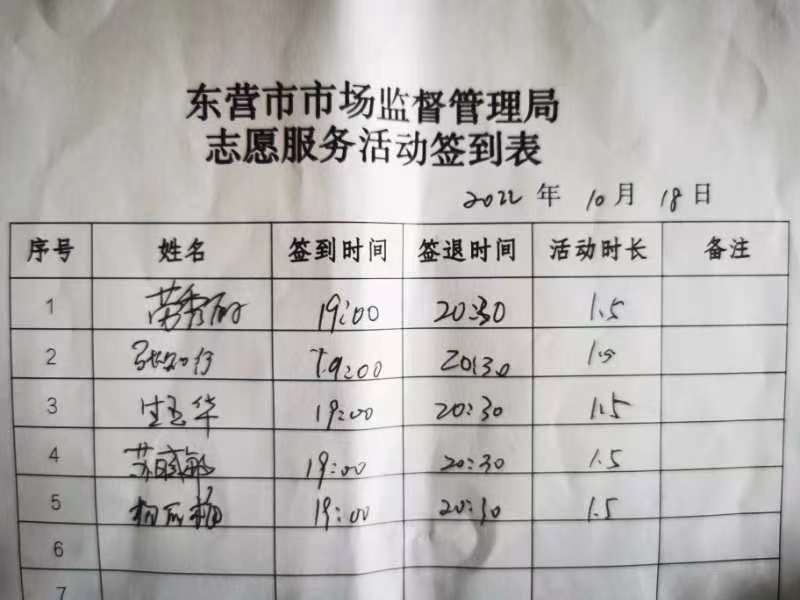 东营市市场监督管理局
志愿服务活动签到表
2022 年 10 月 18 日
序号 姓名 签到时间 签退时间 活动时长 备注
1 19:00 20:30 1.5
2 19:00 20:30 1.5
3 生玉华 19:00 20:30 1.5
4 19:00 20:30 1.5
5 19:00 20:30 1.5
6
7